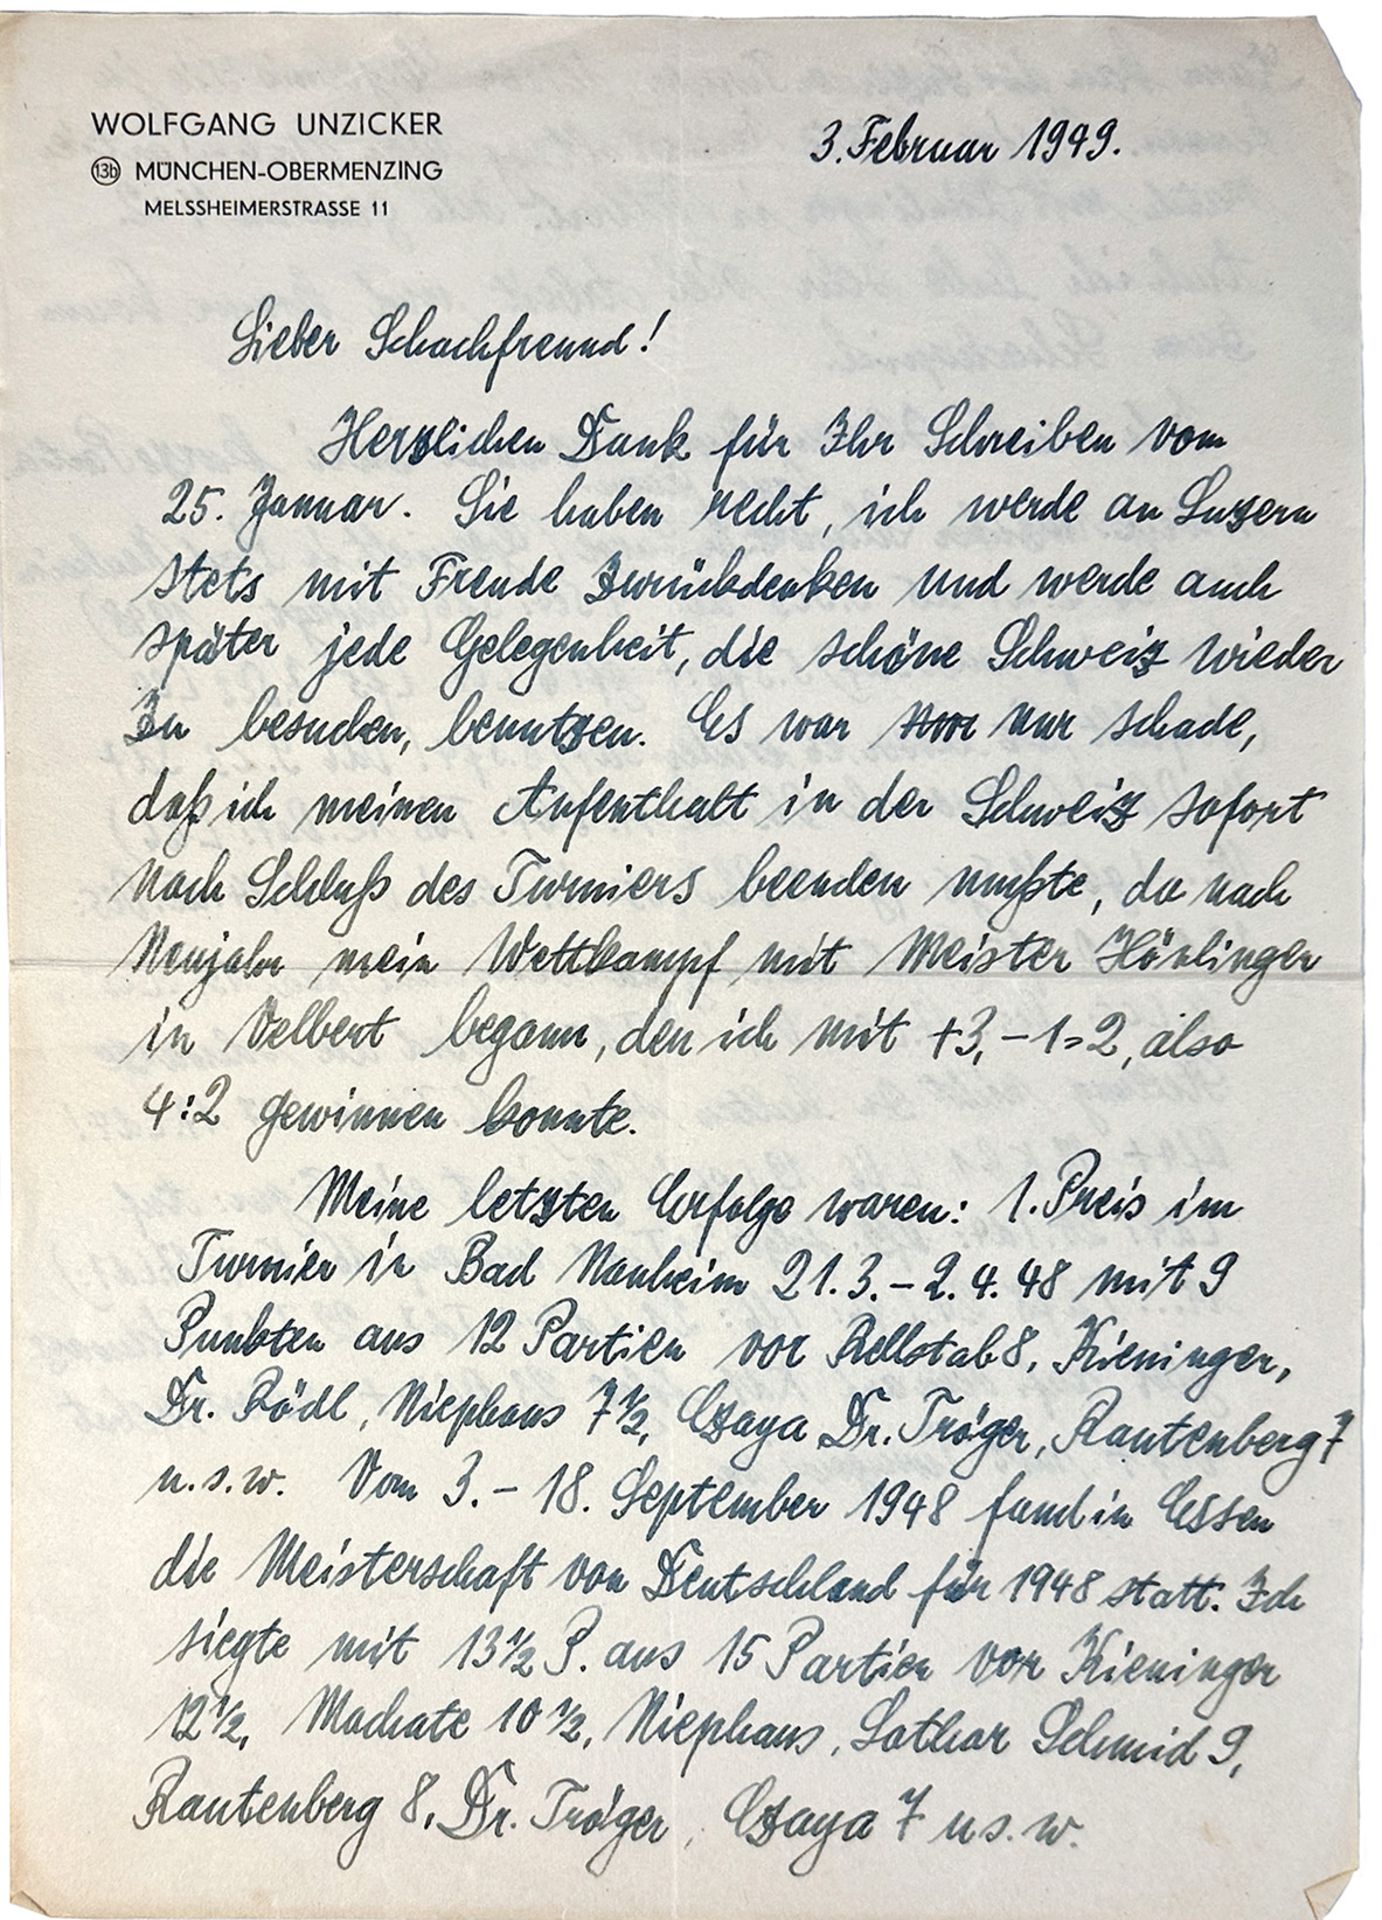 WOLFGANG UNZICKER
13b MÜNCHEN-OBERMENZING
MELSSHEIMERSTRASSE 11
3. Februar 1949.
Lieber Schachfreund!
Herzlichen Dank für Ihr Schreiben vom
25. Januar. Sie haben recht, ich werde an Luzern
stets mit Freude zurückdenken und werde auch
später jede Gelegenheit, die schöne Schweiz wieder
zu besuchen, benutzen. Es war nur schade,
daß ich meinen Aufenthalt in der Schweiz sofort
nach Schluß des Turniers beenden mußte, da nach
Neujahr mein Wettkampf mit Meister Hönlinger
in Velbert begann, den ich mit +3, -1 =2, also
4:2 gewinnen konnte.
Meine letzten Erfolge waren: 1. Preis im
Turnier in Bad Nauheim 21.3. – 2.4.48 mit 9
Punkten aus 12 Partien vor Rellstab 8, Kieninger,
Dr. Rödl, Niephaus 7½, Czaya Dr. Tröger, Rautenberg 7
u.s.w. Vom 3. – 18. September 1948 fand in Essen
die Meisterschaft von Deutschland für 1948 statt. Ich
siegte mit 13½ P. aus 15 Partien vor Kieninger
12½, Machate 10½, Niephaus, Lothar Schmid 9,
Rautenberg 8, Dr. Tröger, Czaya 7 u.s.w.